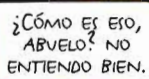 ¿CÓMO ES ESO,
ABUELO? NO
ENTIENDO BIEN.